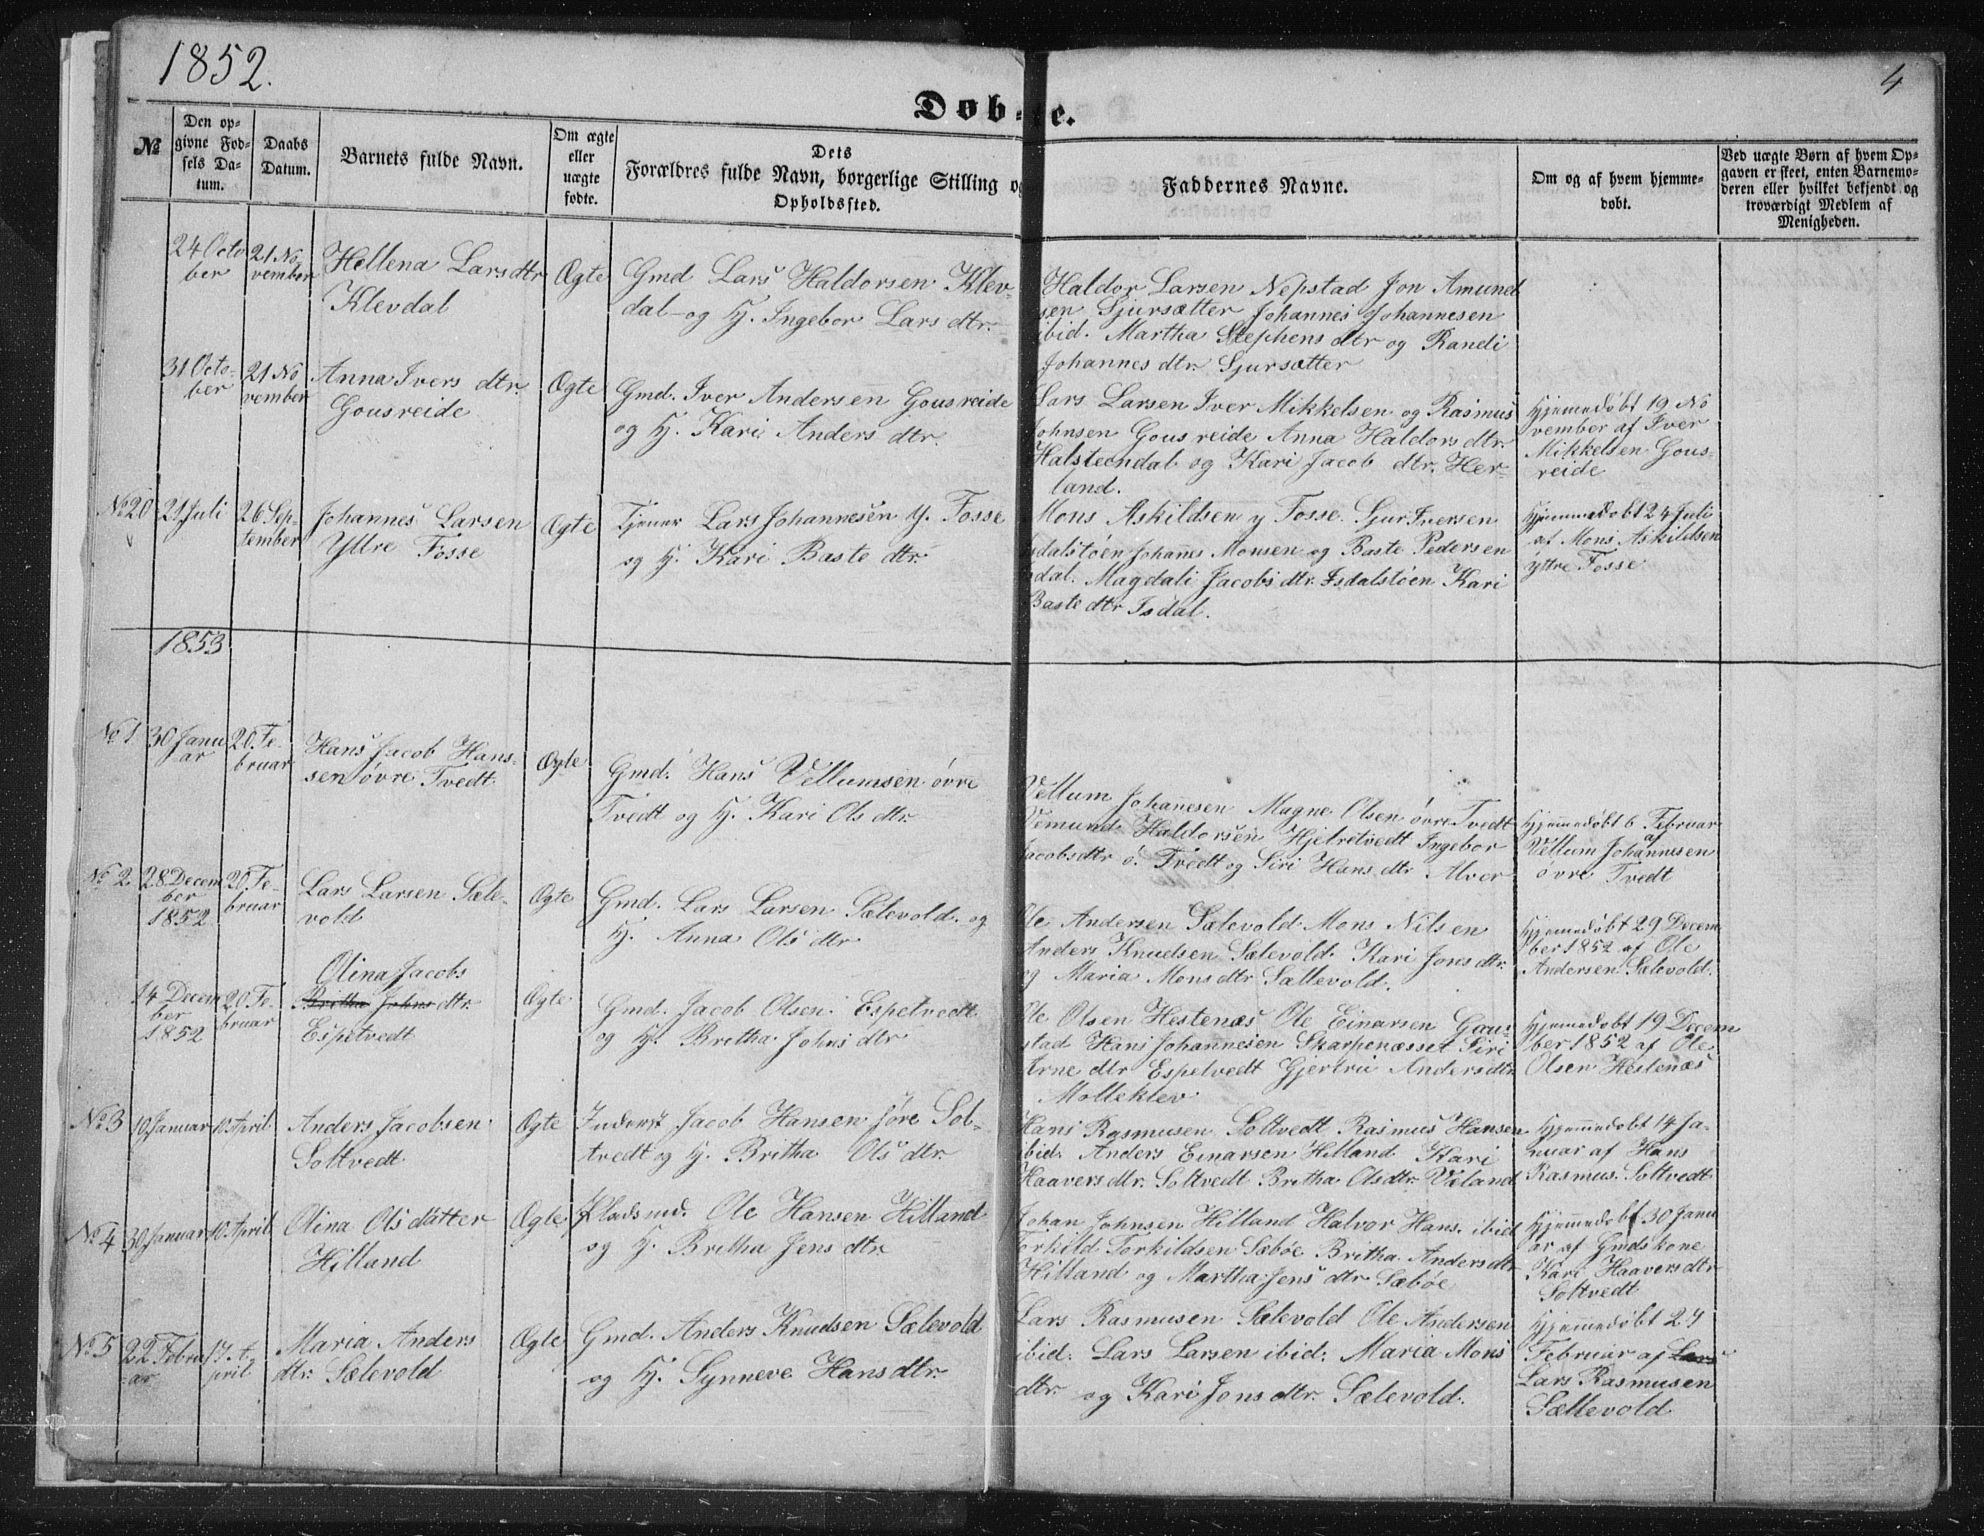 1852.
4
Døbte.
№
Den op-
givne Fød-
sels Da-
tum.
Daabs
Datum.
Barnets fulde Navn.
Om ægte
eller
uægte
fødte.
Dets
Forældres fulde Navn, borgerlige Stilling og
Opholdssted.
Faddernes Navne.
Om og af hvem hjemme-
døbt.
Ved uægte Børn af hvem Op-
gaven er skeet, enten Barnemo-
deren eller hvilket bekjendt og
troværdigt Medlem af
Menigheden.
24 Octo
ber
21 No
vember
Hellena Lars dtr
Klevdal
Ægte
Gmd Lars Haldorsen Klev-
dal og H. Ingebor Lars dtr.
Haldor Larsen Nepstad Jon Amund
sen Sjursætter Johannes Johannesen
ibid. Martha Stephens dtr og Randi
Johannes dtr. Sjursætter
31 Octo-
ber
21 No
vember
Anna Ivers dtr.
Gousreide
Ægte
Gmd. Iver Andersen Gousreide
og H. Kari Anders dtr.
Lars Larsen Iver Mikkelsen og Rasmus
Johnsen Gousreide Anna Haldors dtr.
Halsteendal og Kari Jacob dtr. Her-
land.
Hjemmedøbt 19 No
vember af Iver
Mikkelsen Gous-
reide
No 20
21 Juli
26 Sep-
tember
Johannes Larsen
Yttre Fosse
Ægte
Tjener Lars Johannesen y. Fosse
og H. Kari Baste dtr.
Mons Askildsen y Fosse. Sjur Iversen
Isdalstøen Johanes Monsen og Baste Pedersen
Isdal. Magdali Jacobs dtr. Isdalstøen Kari
Baste dtr Isdal.
Hjemmedøbt 24 Juli
af Mons Askildsen
yttre Fosse
1853
No 1
30 Janu
ar
20. Fe-
bruar
Hans Jacob Hans-
sen øvre Tvedt
Ægte
Gmd. Hans Vellumsen øvre
Tvedt og H. Kari Ols dtr.
Vellum Johanesen Magne Olsen øvre Tvedt
Vemund Haldorsen Hjelretvedt Ingebor
Jacobsdtr ø. Tvedt og Siri Hans dtr Alver
Hjemmedøbt 6 Februar
af
Vellum Johannesen
øvre Tvedt
No 2
28 Decem
ber
1852
20 Fe-
bruar
Lars Larsen Sæle-
vold
Ægte
Gmd. Lars Larsen Sælevold. og
H. Anna Ols dtr
Ole Andersen Sælevold Mons Nilsen
Anders Knudsen Sælevold. Kari Jones dtr.
og Maria Mons dtr Sællevold.
Hjemmedøbt 29 Decem
ber 1852 af Ole
Andersen Sælevold.
14 Decem
ber
1852
20 Fe-
bruar
Olina Jacobs
Britha Johns dtr.
Espetvedt
Ægte
Gmd. Jacob Olsen Espetvedt
og H. Britha Johns dtr
Ole Olsen Hestenæs Ole Einarsen Gau-
stad Hans Johannesen Skarpenæsset Siri
Arne dtr Espetvedt Gjertru Anders dtr
Molleklev
Hjemmedøbt 19 Decem
ber 1852 af Ole
Olsen Hestenæs
No 3
10 Januar
10 April
Anders Jacobsen
Soltvedt
Ægte
Inderst Jacob Hansen Søre Sol-
tvedt og H. Britha Ols dtr.
Hans Rasmusen Soltvedt Rasmus Hansen
ibid. Anders Einarsen Hilland Kari
Haavers dtr. Soltvedt Britha Olsdtr. Væland
Hjemmedøbt 14 Ja-
nuar af Hans
Rasmus. Soltvedt
No 4
30 Januar
10 April
Olina Ols datter
Hilland
Ægte
Pladsmd. Ole Hansen Hilland
og H. Britha Jens dtr
Johan Johnsen Hilland Halvor Hans. ibid
Torkild Torkildsen Sæbøe Britha Anders dtr
Hilland og Martha Jens dtr. Sæbøe
Hjemmedøbt 30 Janu
ar af Gmds kone
Kari Haavers dtr
Soltvedt
No 5
22 Febru
ar
17 A-
pril
Maria Anders
dtr. Sælevold
Ægte
Gmd. Anders Knudsen Sælevold
og H. Synneve Hans dtr.
Lars Rasmusen Sælevold Ole Andersen
ibid. Lars Larsen ibid. Maria Mons
dtr. og Kari Jons dtr. Sælevold.
Hjemmedøbt 24
Februar af Lars
Lars Rasmusen
Sællevold